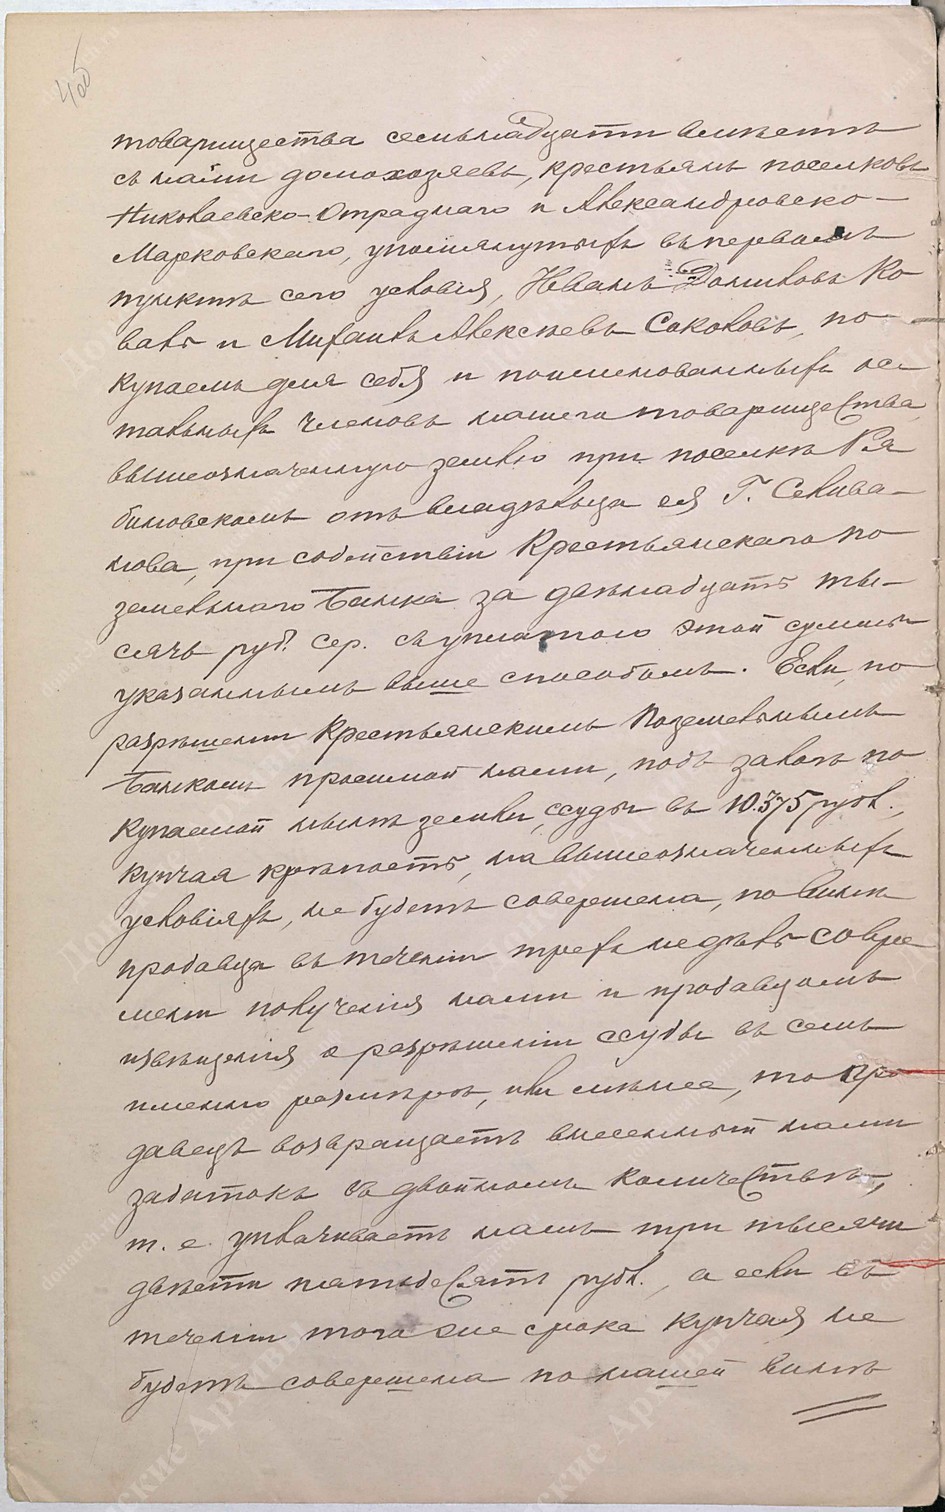 товарищества семьнадцати вместѣ
съ нами домохозяевъ, крестьянъ поселковъ
Николаевско-Отраднаго и Александровско-
Марковскаго, упомянутыхъ въ первомъ
пунктѣ сего условія, Иванъ Доминовъ Ко
валь и Михаилъ Алексѣевъ Соколовъ, по
купаемъ для себя и поименованныхъ ос
тальныхъ членовъ нашего товарищества
вышеозначенную землю при поселкѣ Ря
биновскомъ отъ владѣльца ея Г. Селива-
нова, при содѣйствіи Крестьянскаго По
земельнаго Банка за двѣнадцать ты-
сячъ руб. сер. съ уплатою этой суммы
указаннымъ выше способомъ. Если, по
разрѣшеніи Крестьянскимъ Поземельнымъ
Банкомъ просимой нами, подъ залогъ по
купаемой нынѣ земли, ссуды въ 10.375 рубл.,
купчая крѣпость, на вышеозначенныхъ
условіяхъ, не будетъ совершена, по винѣ
продавца въ теченіи трехъ недѣль со вре
мени полученія нами и продавцомъ
извѣщенія о разрѣшеніи ссуды въ семъ
именно размѣрѣ, или менѣе, то про
давецъ возвращаетъ внесенный нами
задатокъ въ двойномъ количествѣ,
т. е. уплачиваетъ намъ три тысячи
двѣсти пятьдесятъ рубл., а если въ
теченіи того же срока купчая не
будетъ совершена по нашей винѣ